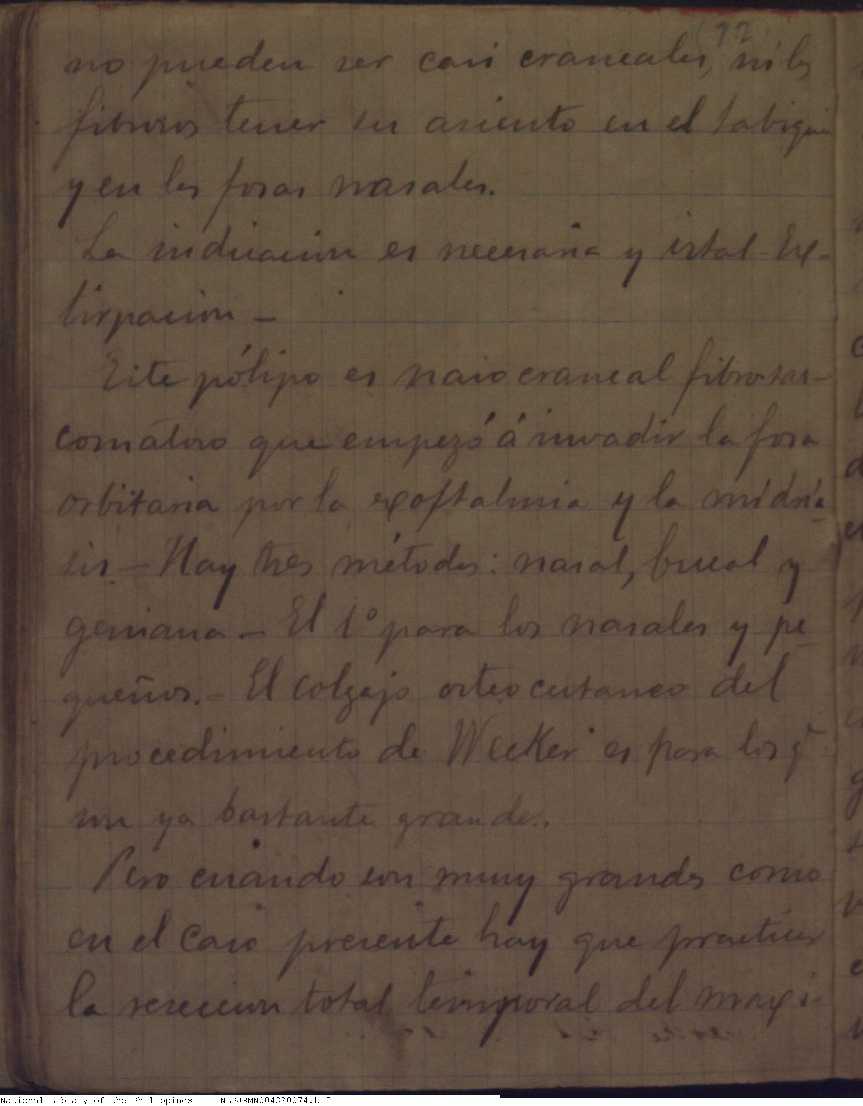 (72)
no pueden ser casi craneales, ni los
fibrosos tener su asiento en el tabique
y en las fosas nasales.
La indicacion es necesaria y total - Ex-
tirpacion -
Este pólipo es naso craneal fibrosar-
comatoso que empezó á invadir la fosa
orbitaria por la exoftalmia y la midria
sis - Hay tres métodos: nasal, bucal y
geniana - El 1º para los nasales y pe-
queños. - El colgajo osteocutaneo del
procedimiento de Wecker es para los q
son ya bastante grandes.
Pero cuando son muy grandes como
en el caso presente hay que practicar
la reseccion total temporal del maxi-
National Library of the Philippines